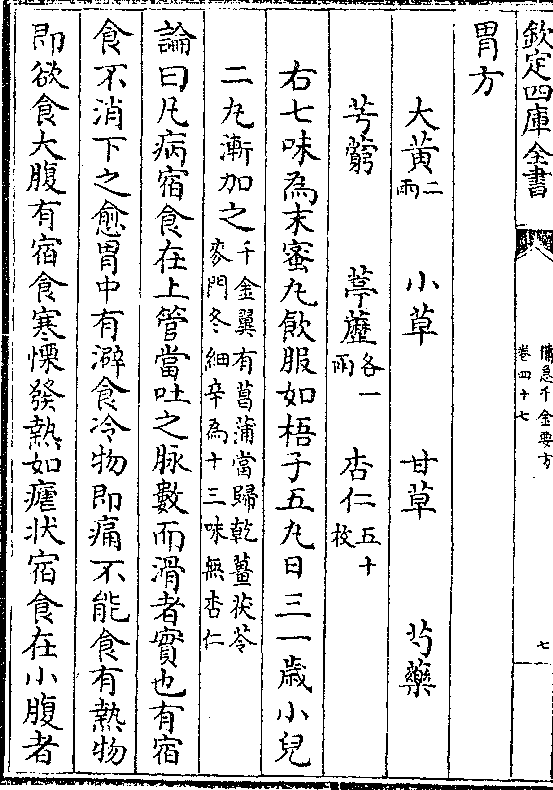 欽定四庫全書
備急千金要方
卷四十七
七
胃方
大黃二兩 小草 甘草 芍藥
芎藭 葶藶各一兩 杏仁五十枚
右七味為末蜜丸飲服如梧子五丸日三一歲小兒
二丸漸加之千金翼有菖蒲當歸乾薑茯苓
麥門冬細辛為十三味無杏仁
論曰凡病宿食在上管當吐之脉數而滑者實也有宿
食不消下之愈胃中有澼食冷物即痛不能食有熱物
即欲食大腹有宿食寒慄發熱如瘧狀宿食在小腹者